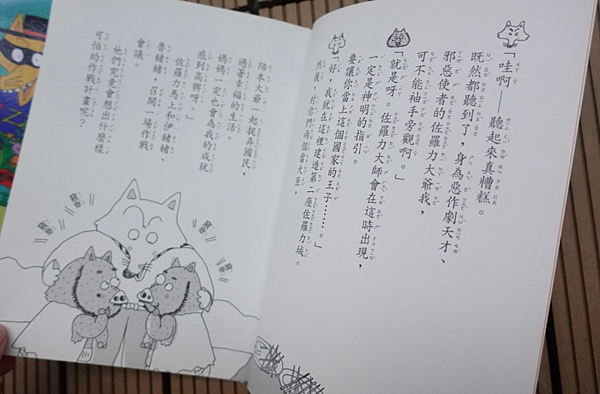 「哇啊——聽起來真糟糕。
既然都聽到了，身為惡作劇天才、
邪惡使者的佐羅力大爺我，
可不能袖手旁觀啊。」
「就是呀。佐羅力大師會在這時出現，
一定是神明的指引。
要讓你當上這個國家的王子……。」
「好，我就在這裡建造第二座佐羅力城。
然後，封你們兩個當大臣，
陪本大爺一起捉弄國民，
過著幸福的生活。
媽媽一定也會為我的成就
感到高興呀。」
佐羅力馬上和伊豬豬、
魯豬豬，召開一場作戰
會議。
他們究竟會想出什麼樣
可怕的作戰計畫呢？